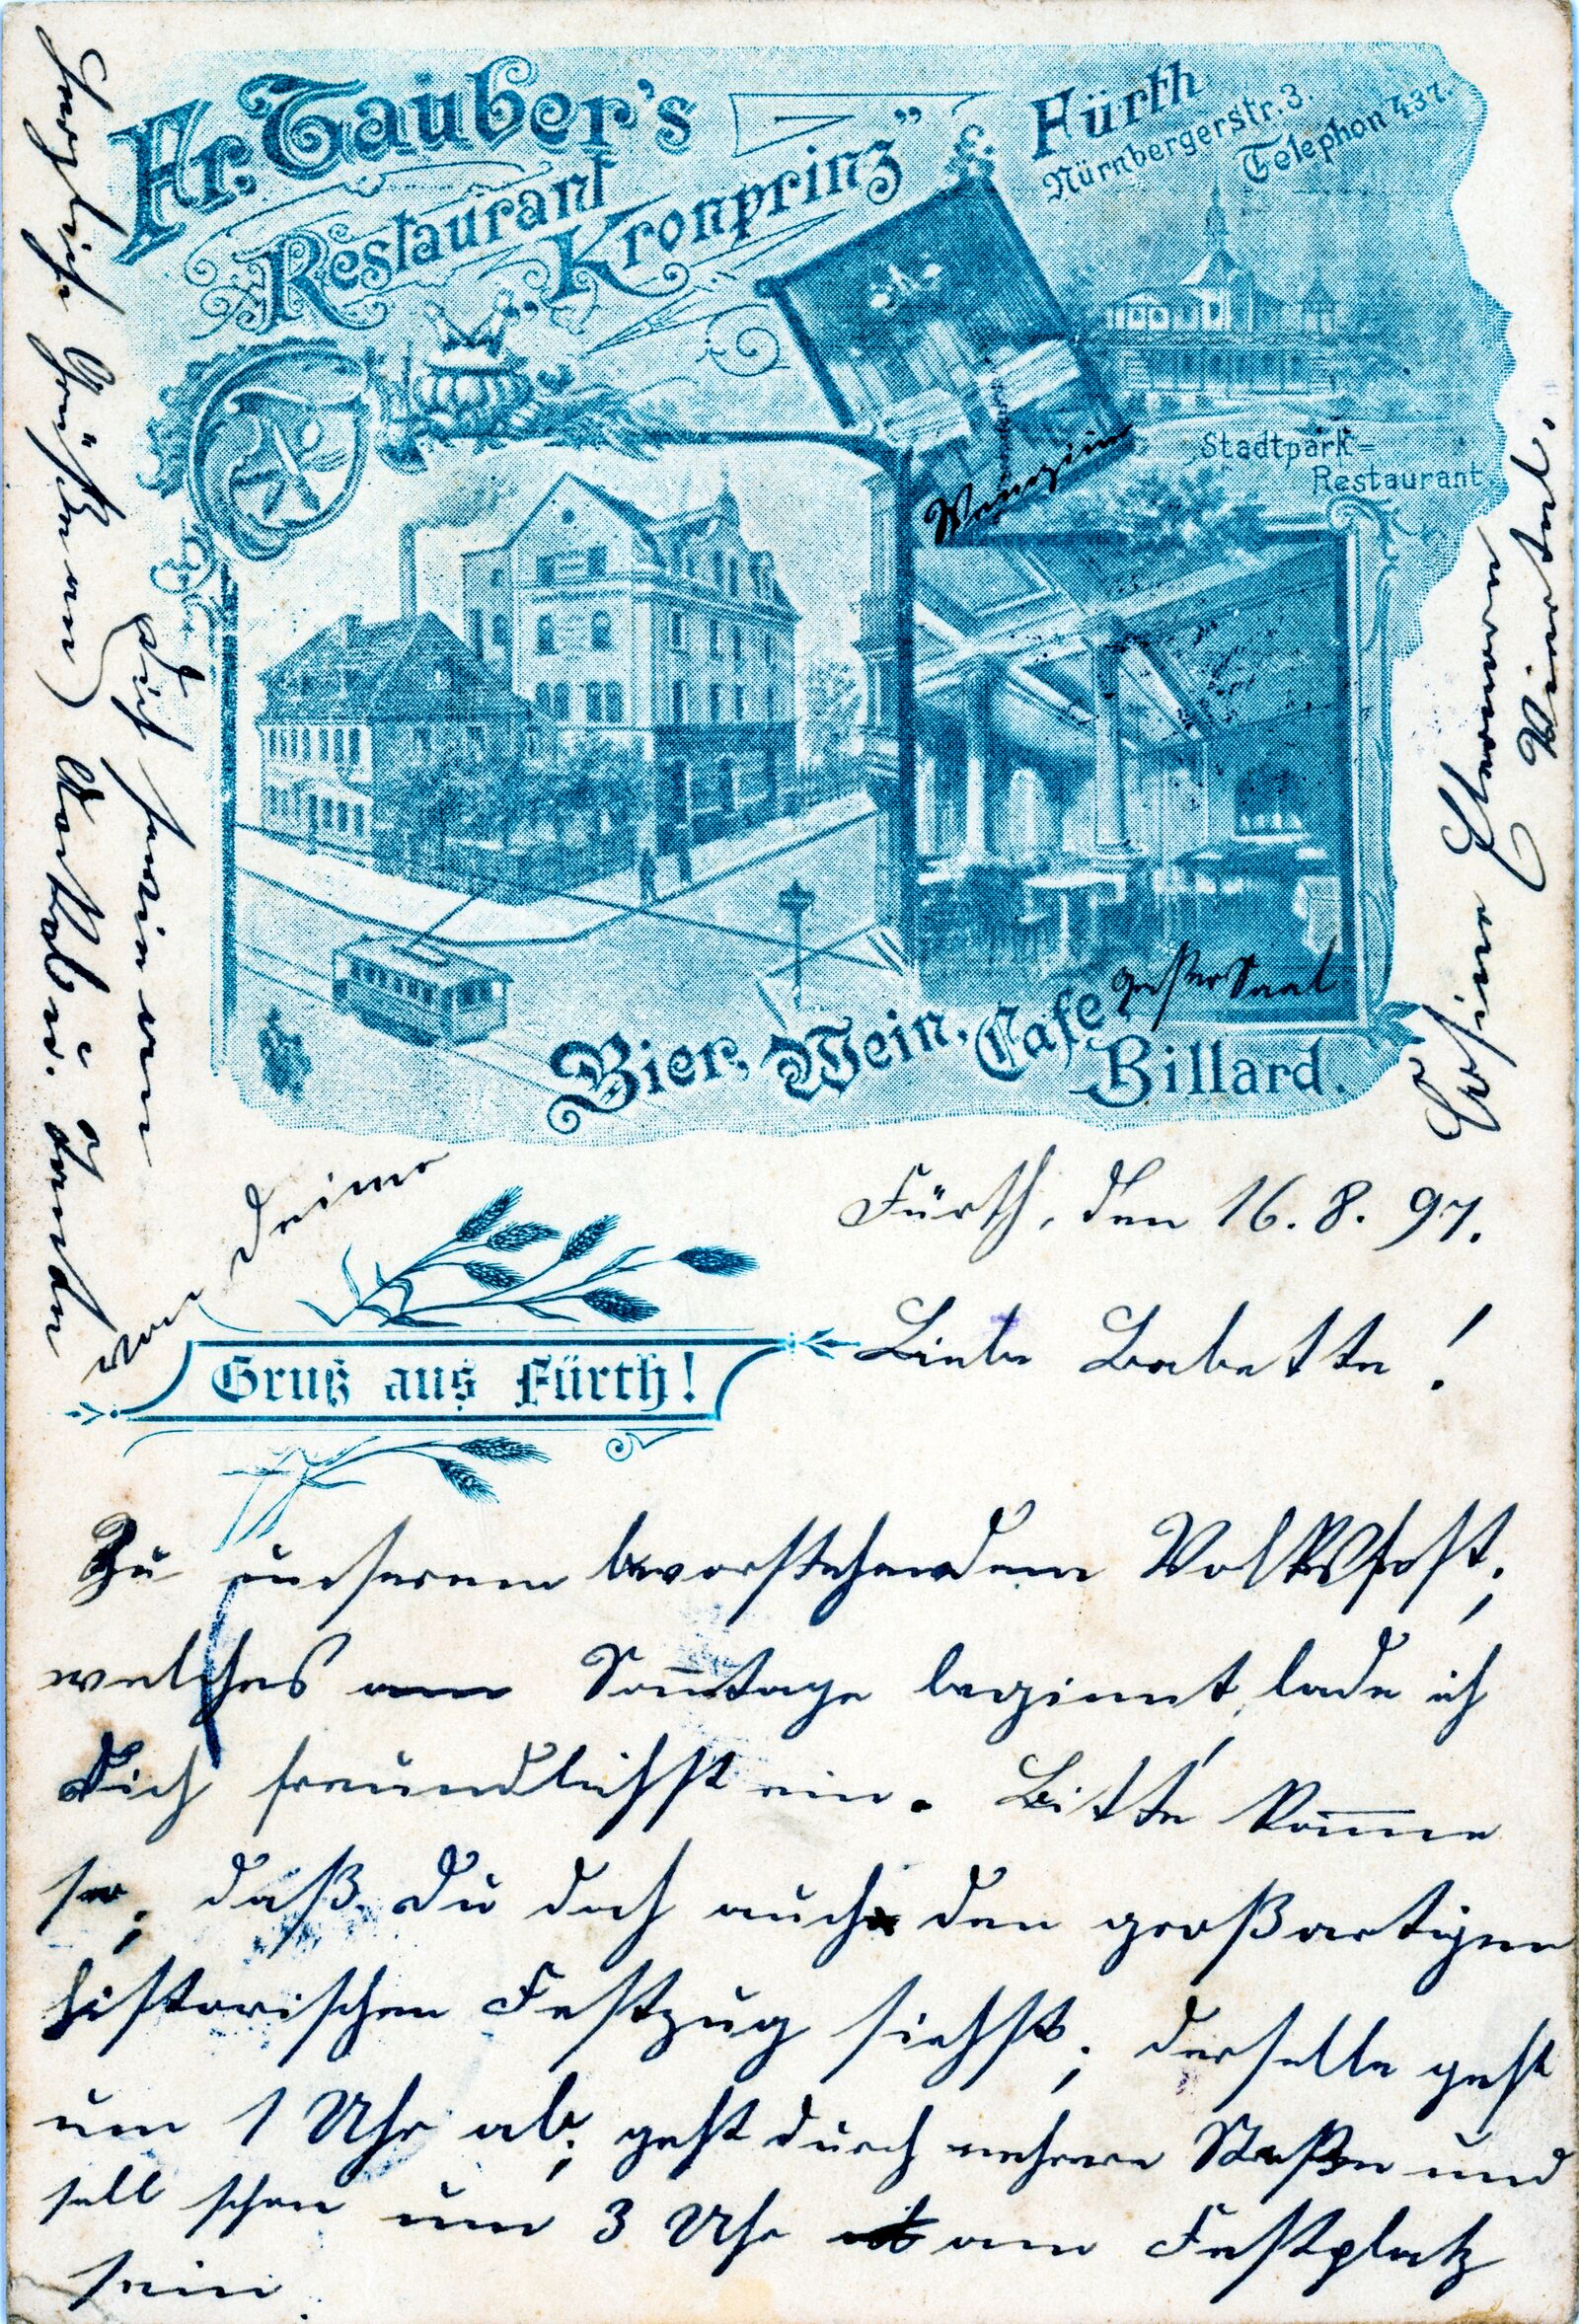 Fr. Tauber's
Restaurant
„Kronprinz”
Fürth
Nürnbergerstr. 3.
Telephon 437.
Stadtpark=
Restaurant
Weinzim
großer Saal
Bier, Wein, Cafe
Billard.
Fürth, den 16. 8. 97.
Gruß aus Fürth!
Liebe Babette!
Zu unserem bevorstehendem Volksfest,
welches am Sonntage beginnt, lade ich
Dich freundlichst ein. Bitte komme
so, daß Du doch auch den großartigen
historischen Festzug siehst, derselbe geht
um 1 Uhr ab, geht durch mehrere Straßen und
soll schon um 3 Uhr am Festplatz
sein.
Herzliche Grüße an
Dich sowie
von Deiner